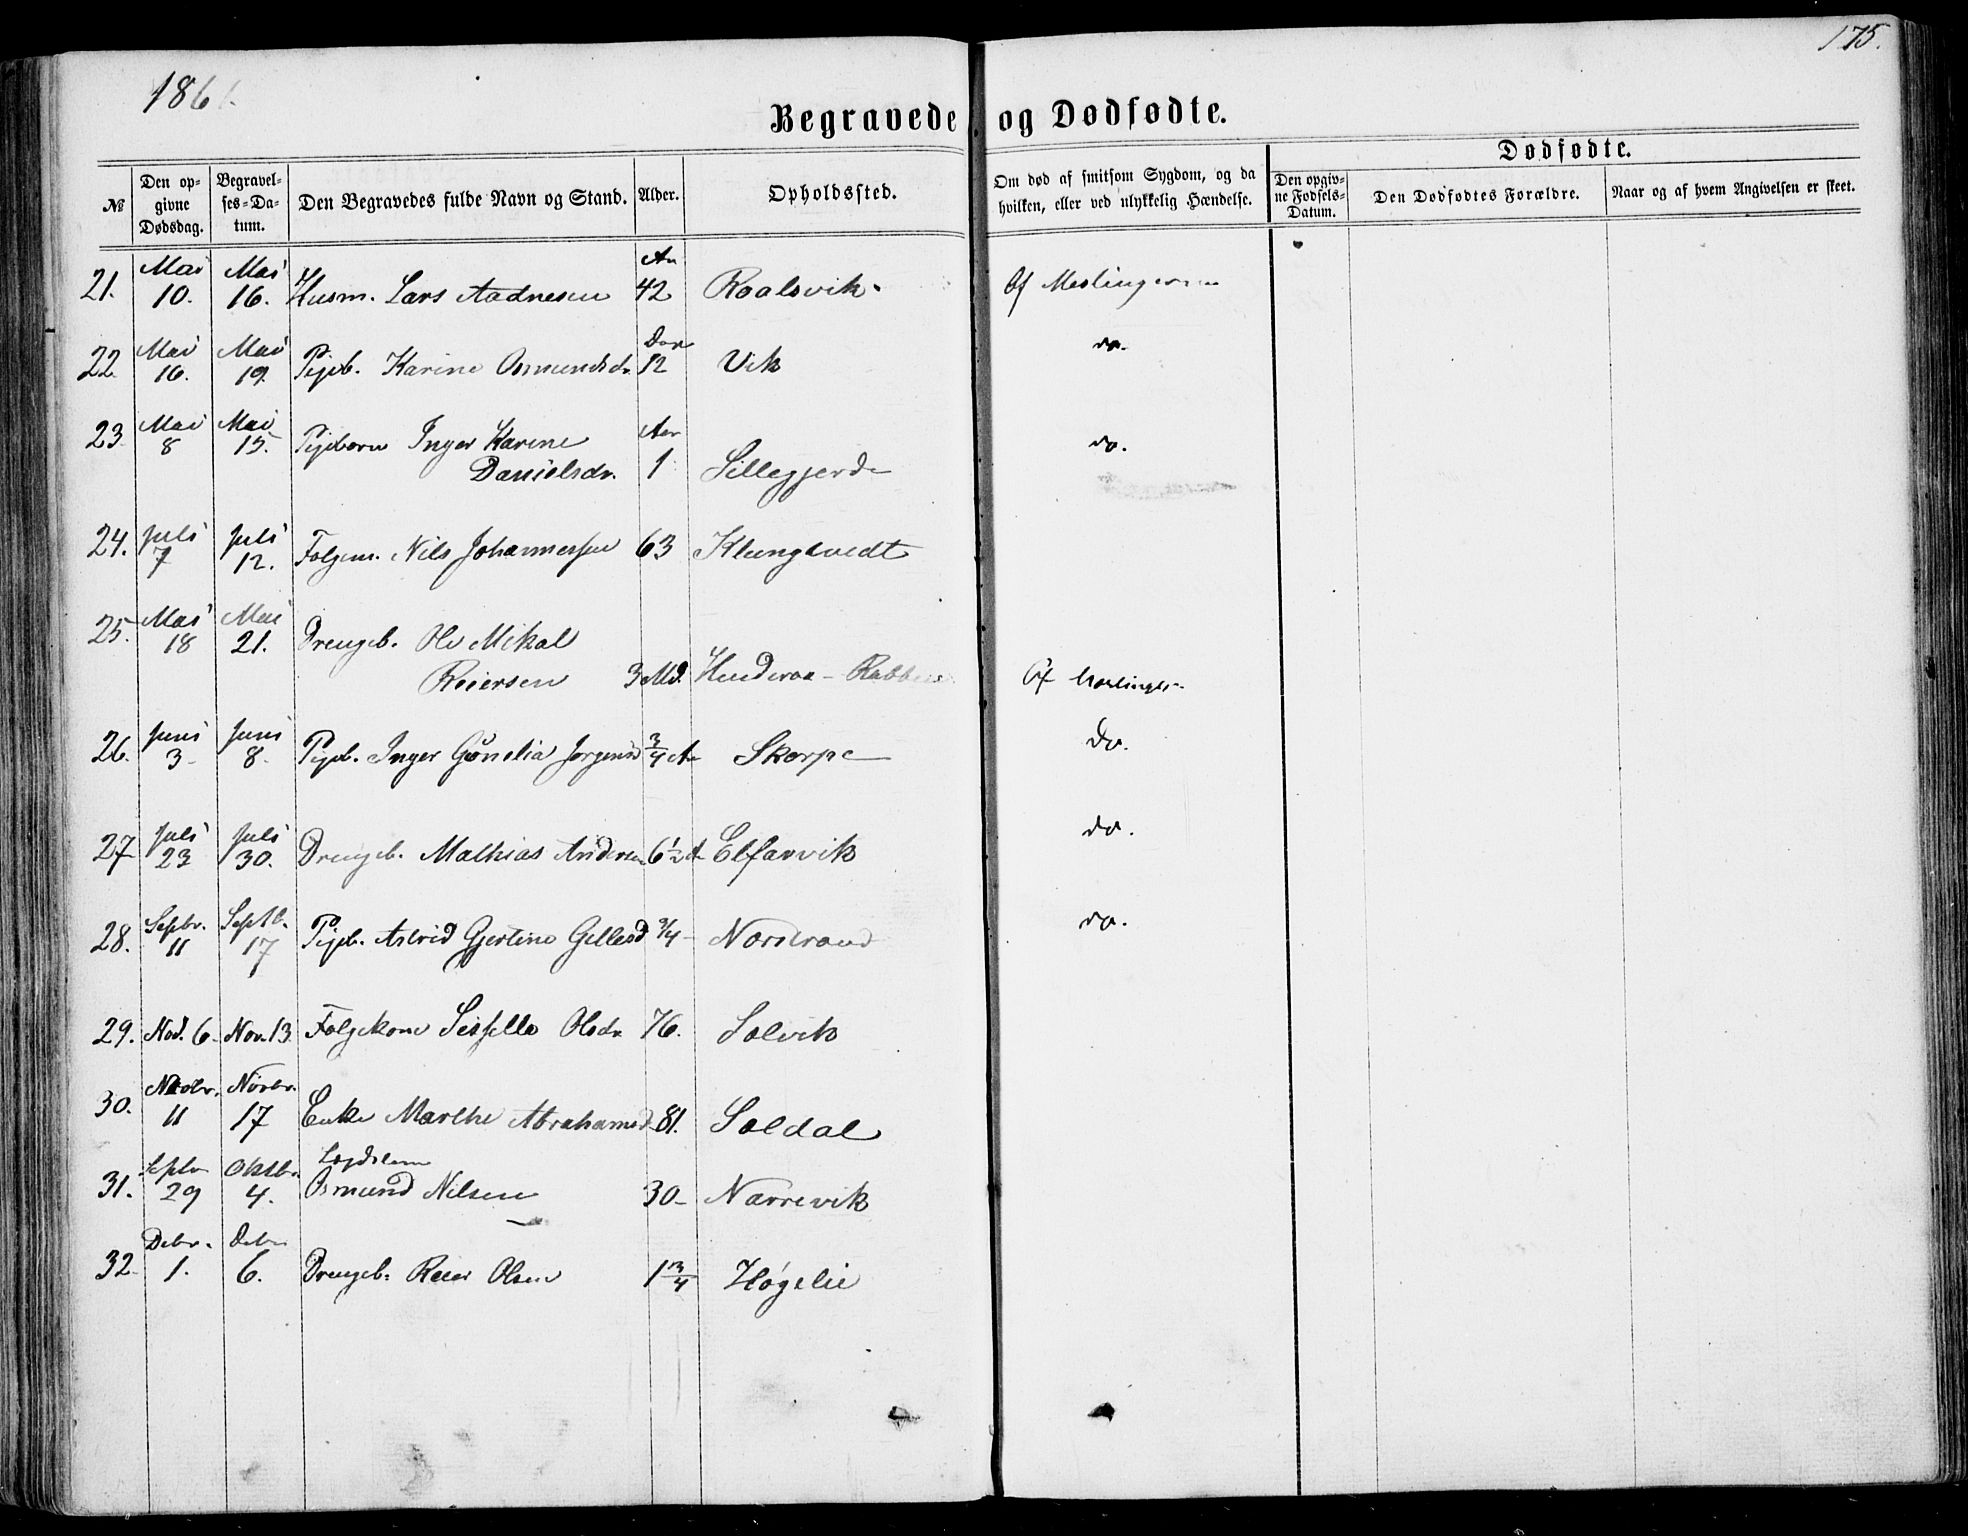 1861.
175.
Begravede og Dødfødte.
Dødfødte.
№
Den opgivne Dødsdag.
Begravelses-Datum.
Den Begravedes fulde Navn og Stand.
Alder.
Opholdssted.
Om død af smitsom Sygdom, og da hvilken, eller ved ulykkelig Hændelse.
Den opgivne Fødsels-Datum.
Den Dødfødtes Forældre.
Naar og af hvem Angivelsen er skeet.
21. Mai 10. Mai 16. Husm. Lars Aadnesen Aar 42 Roalsvik. Af Meslingerne
22 Mai 16. Mai 19. Pigeb. Karine Osmundsdr. 12 Vik do.
23 Mai 8 Mai 15. Pigebarn Inger Karine
Danielsdr. Aar 1 Sillegjerde do.
24. Juli 7 Juli 12. Folgem. Nils Johannessen 63 Klungtvedt
25. Mai 18 Mai 21. Drengeb. Ole Mikal
Reiersen 3 Md. Henderaa - Af Meslinger
26. Juni 3 Juni 8. Pigeb. Inger Gunelia Jørgensd 3/4 A Skorpe do.
27 Juli 23 Juli 30. Drengeb. Mathias Andersen 6½ A Elfarvik do.
28. Sepbr. 11 Septb. 17 Pigeb. Astrid Gjertine Gellesd 3/4 Norstrand do.
29. Nov. 6 Nov. 13. Folgekone Sisselle Olsdr. 76. Solvik
30. Novbr. 11 Novbr. 17 Enke Marthe Abrahamsd. 81. Soldal
31. Septbr 29 Oktbr. 4. Lægdslem
Osmund Nilsen 30 - Narrevik
32. Debr. 1. Debr 6. Drengeb. Reier Olsen 1 3/4 Høgelie